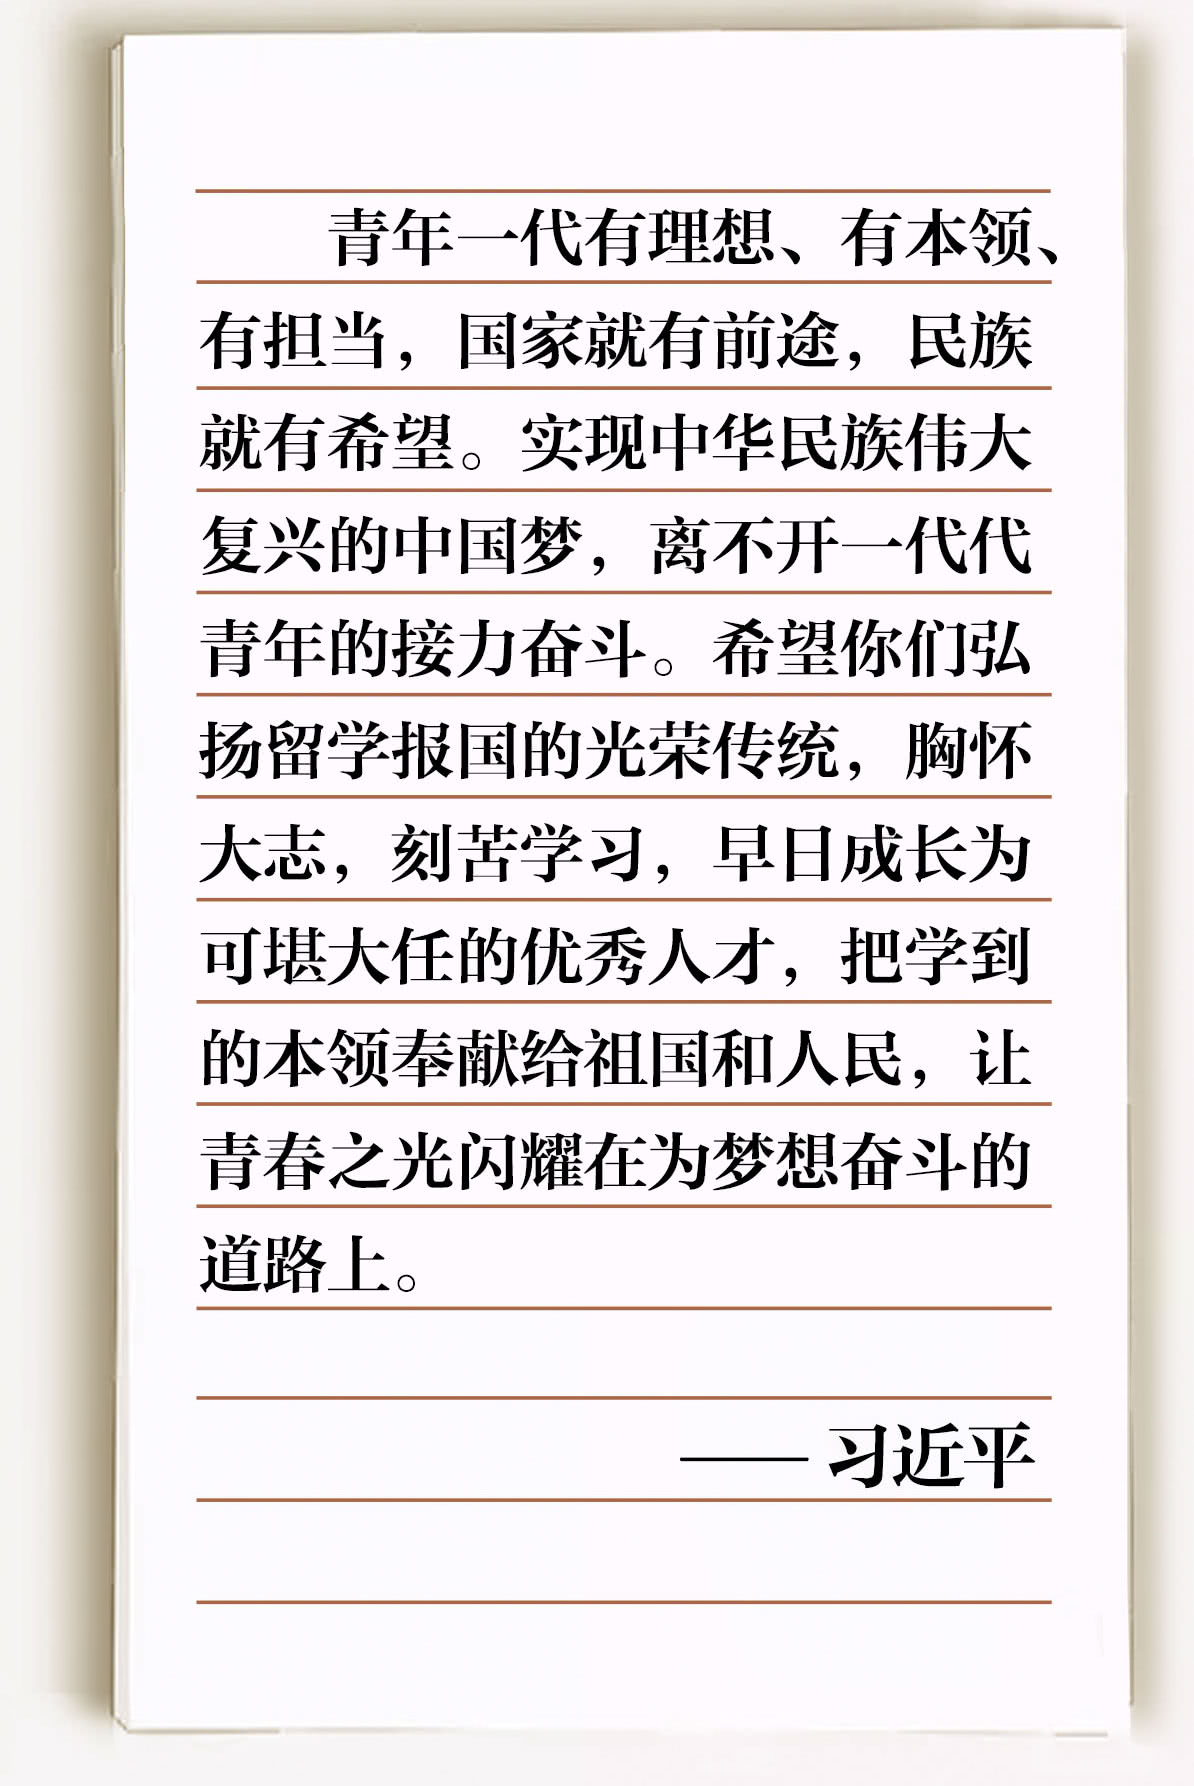 青年一代有理想、有本领、
有担当，国家就有前途，民族
就有希望。实现中华民族伟大
复兴的中国梦，离不开一代代
青年的接力奋斗。希望你们弘
扬留学报国的光荣传统，胸怀
大志，刻苦学习，早日成长为
可堪大任的优秀人才，把学到
的本领奉献给祖国和人民，让
青春之光闪耀在为梦想奋斗的
道路上。
——习近平